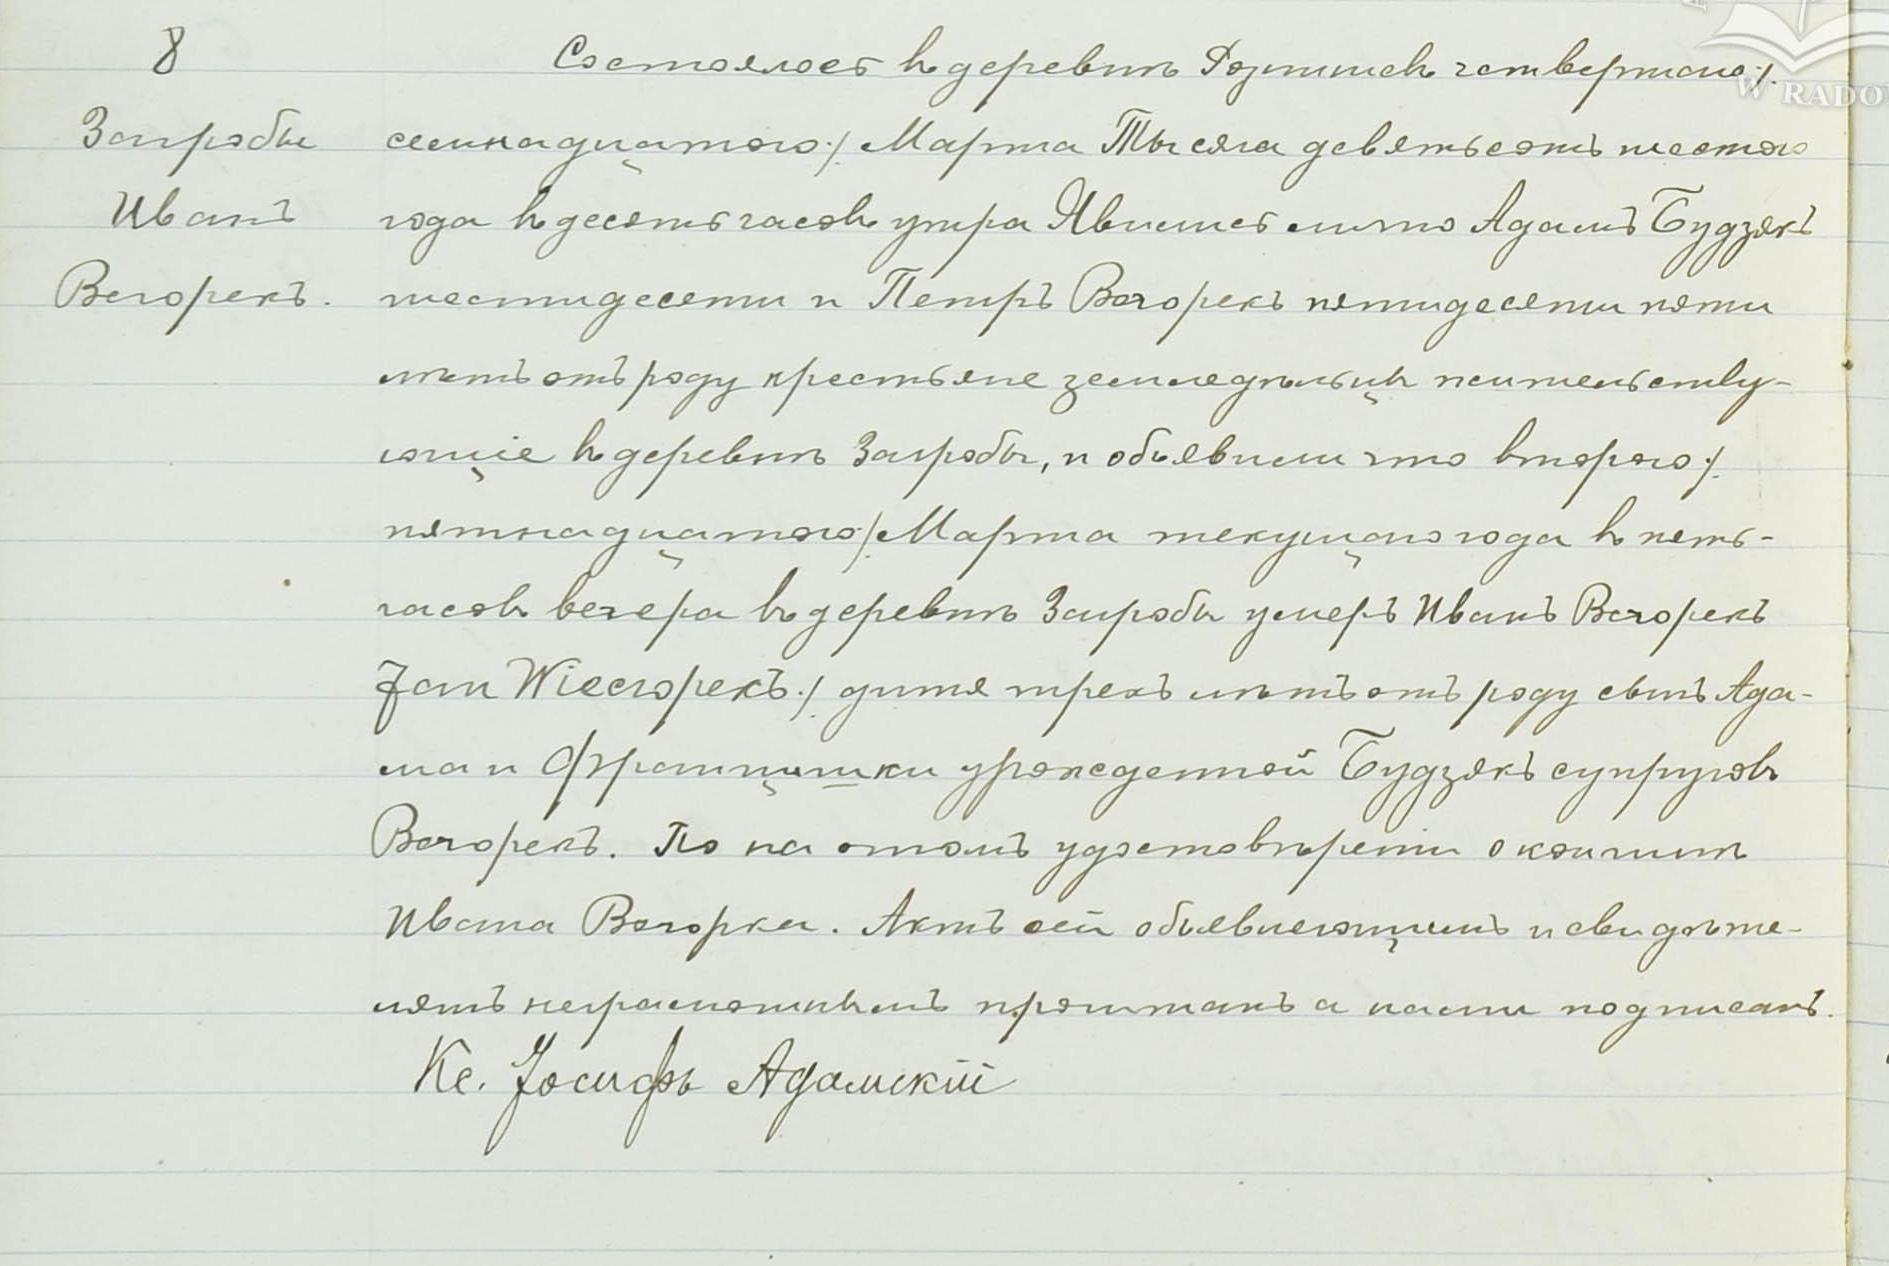 8
Состоялось въ деревнѣ четвертаго /.
Загробы
семнадцатого ./ Марта Тысяча девятьсотъ шестого
Иванъ
года въ десять часовъ утра Явились лично Адамъ Будзякъ
Вечорекъ.
шестидесяти и Петръ Вечорекъ пятидесяти пяти
лѣтъ отъ роду крестьяне земледѣльцы жительству-
ющіе въ деревнѣ Загробы, и объявили что второго /.
пятнадцатого /. Марта текущаго года въ пять-
часовъ вечера въ деревнѣ Загробы умеръ Иванъ Вечорекъ
Jan Wieczорекъ ./ дитя трехъ лѣтъ отъ роду сынъ Ада-
ма и Францишки урожденной Будзякъ супруговъ
Вечорекъ. По настоломъ удостовѣреніи о кончинѣ
Ивана Вечорка. Актъ сей объявляющимъ и свидѣте-
лямъ неграмотнымъ прочитанъ а нами подписанъ.
Кс. Іосифъ Адамскій
W RADO